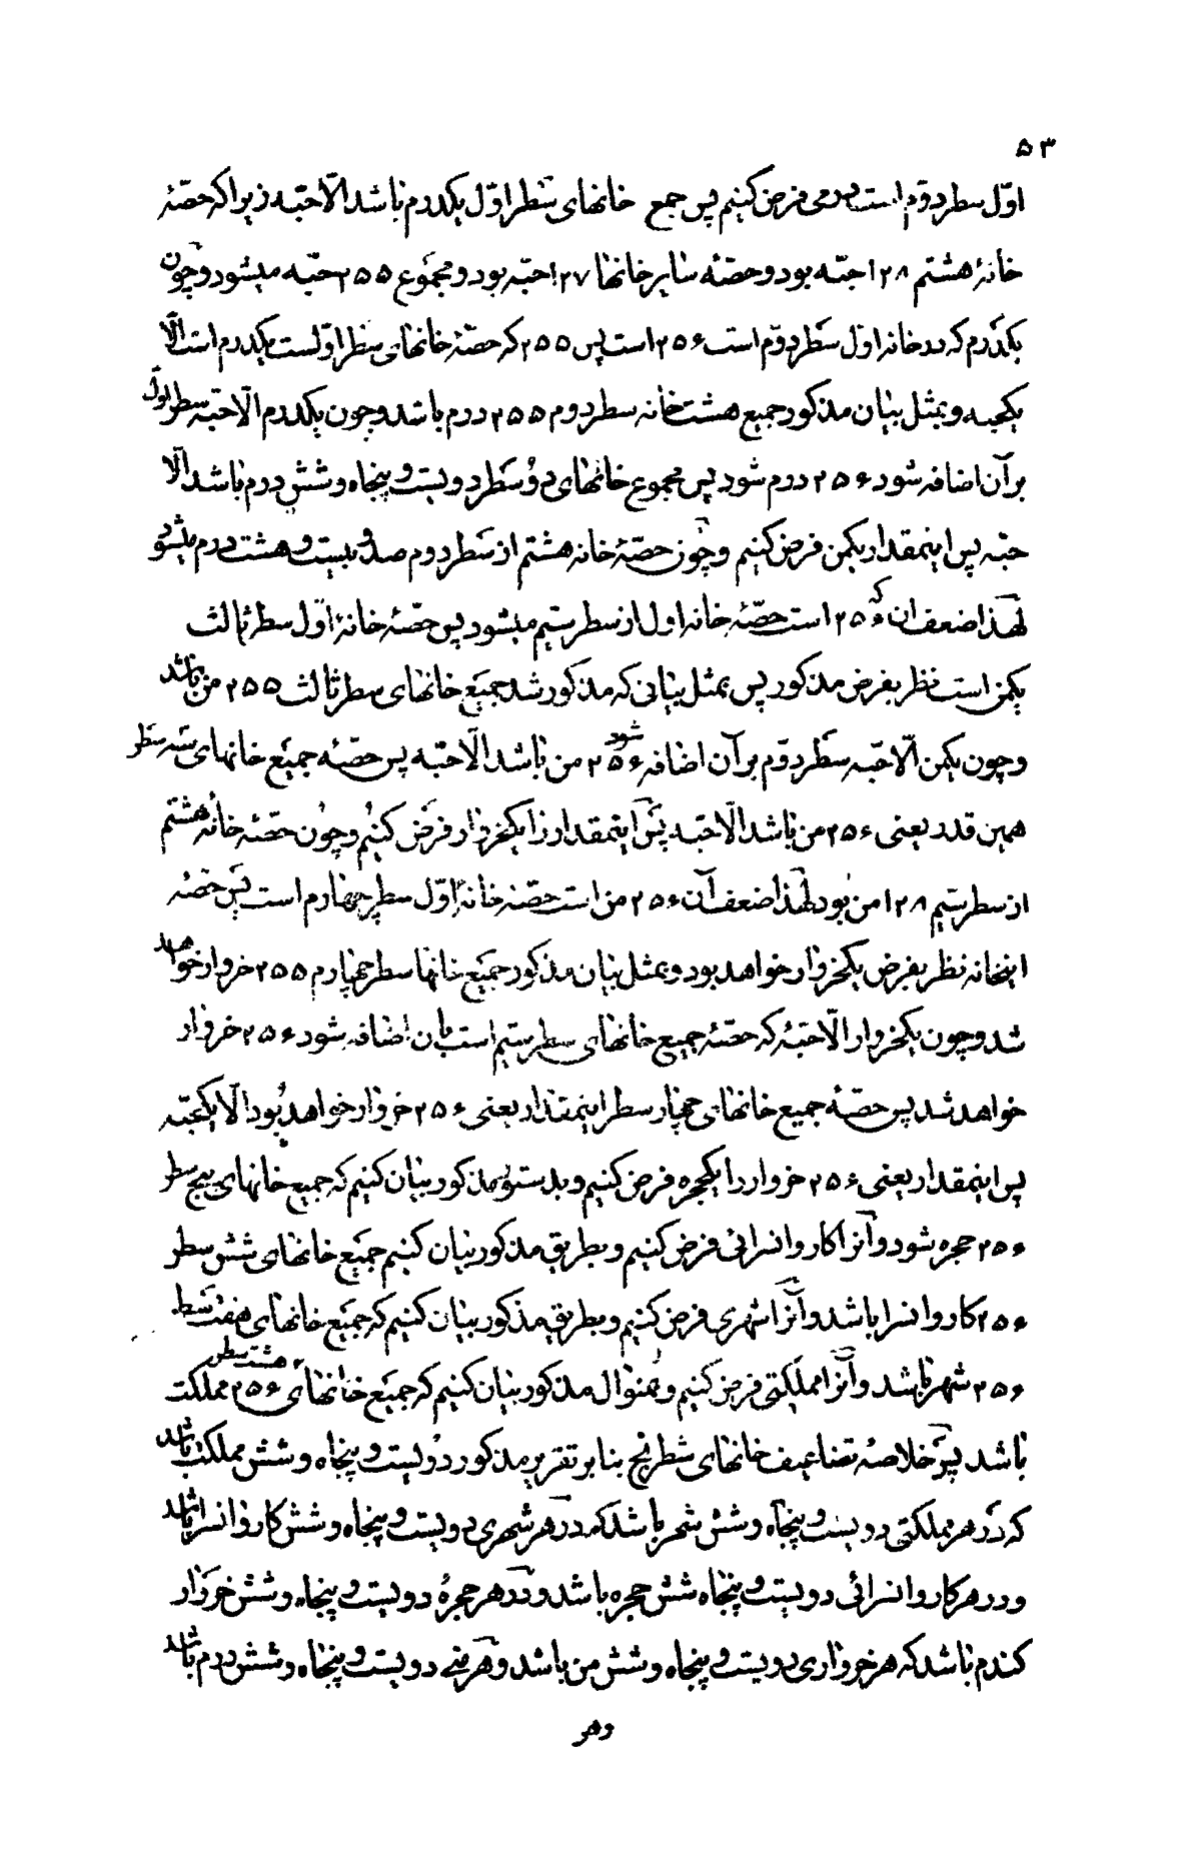 ۵۳
اوّل سطر دوّم است درمی فرض کنیم پس جمع خانهای سطر اوّل یکدرم باشد الّا حبّه زیرا که حصّهٔ
خانهٔ هشتم ۱۲۸ حبّه بود و حصّه سایر خانها ۱۲۷ حبّه بود و مجموع ۲۵۵ حبّه میشود و چون
یکدرم که در خانه اول سطر دوّم است ۲۵۶ است پس ۲۵۵ که حصّهٔ خانهای سطر اولست یکدرم است الّا
یکحبه و بمثل بیان مذکور جمیع هشت خانه سطر دوم ۲۵۵ درم باشد و چون یکدرم الّا حبّه سطر اوّل
بر آن اضافه شود ۲۵۶ درم شود پس مجموع خانهای دو سطر دویست و پنجاه و شش درم باشد الّا
حبّه پس اینمقدار یکمن فرض کنیم و چون حصّهٔ خانه هشتم از سطر دوم صد و بیست و هشت درم میشود
لهذا ضعف آن که ۲۵۶ است حصّهٔ خانه اول از سطر سیّم میشود پس حصّهٔ خانهٔ اوّل سطر ثالث
یکمن است نظر بفرض مذکور پس بمثل بیانی که مذکور شد جمیع خانهای سطر ثالث ۲۵۵ من باشد
و چون یکمن الّا حبّه سطر دوّم بر آن اضافه شود ۲۵۶ من باشد الّا حبّه پس حصّه جمیع خانهای سه سطر
همین قدر یعنی ۲۵۶ من باشد الّا حبّه پس اینمقدار را یکخروار فرض کنیم و چون حصّه خانه هشتم
از سطر سیّم ۱۲۸ من بود لهذا ضعف آن ۲۵۶ من است حصّه خانهٔ اوّل سطر چهارم است پس حصّه
اینخانه نظر بفرض یکخروار خواهد بود و بمثل بیان مذکور جمیع خانها سطر چهارم ۲۵۵ خروار خواهد
شد و چون یکخروار الّا حبّهٔ که حصّهٔ جمیع خانهای سطر سیّم است بآن اضافه شود ۲۵۶ خروار
خواهد شد پس حصّهٔ جمیع خانهای چهار سطر اینمقدار یعنی ۲۵۶ خروار خواهد بود الّا یکحبّه
پس اینمقدار یعنی ۲۵۶ خروار را یکحجره فرض کنیم و بدستور مذکور بیان کنیم که جمیع خانهای پنج سطر
۲۵۶ حجره شود و آنرا کاروانسرائی فرض کنیم و بطریق مذکور بیان کنیم جمیع خانهای شش سطر
۲۵۶ کاروانسرا باشد و آنرا شهری فرض کنیم و بطریق مذکور بیان کنیم که جمیع خانهای هفت سطر
۲۵۶ شهر باشد و آنرا مملکتی فرض کنیم و بمنوال مذکور بیان کنیم که جمیع خانهای هشت سطر ۲۵۶ مملکت
باشد پس خلاصهٔ تضاعیف خانهای شطرنج بنا بر تقریر مذکور دویست و پنجاه و شش مملکت باشد
که در هر مملکتی دویست و پنجاه و شش شهر باشد که در هر شهری دویست و پنجاه و شش کاروانسرا باشد
و در هر کاروانسرائی دویست و پنجاه شش حجره باشد و در هر حجرهٔ دویست و پنجاه و شش خروار
کندم باشد که هر خرواری دویست و پنجاه و شش من باشد و هر منی دویست و پنجاه و شش درم باشد
و هر